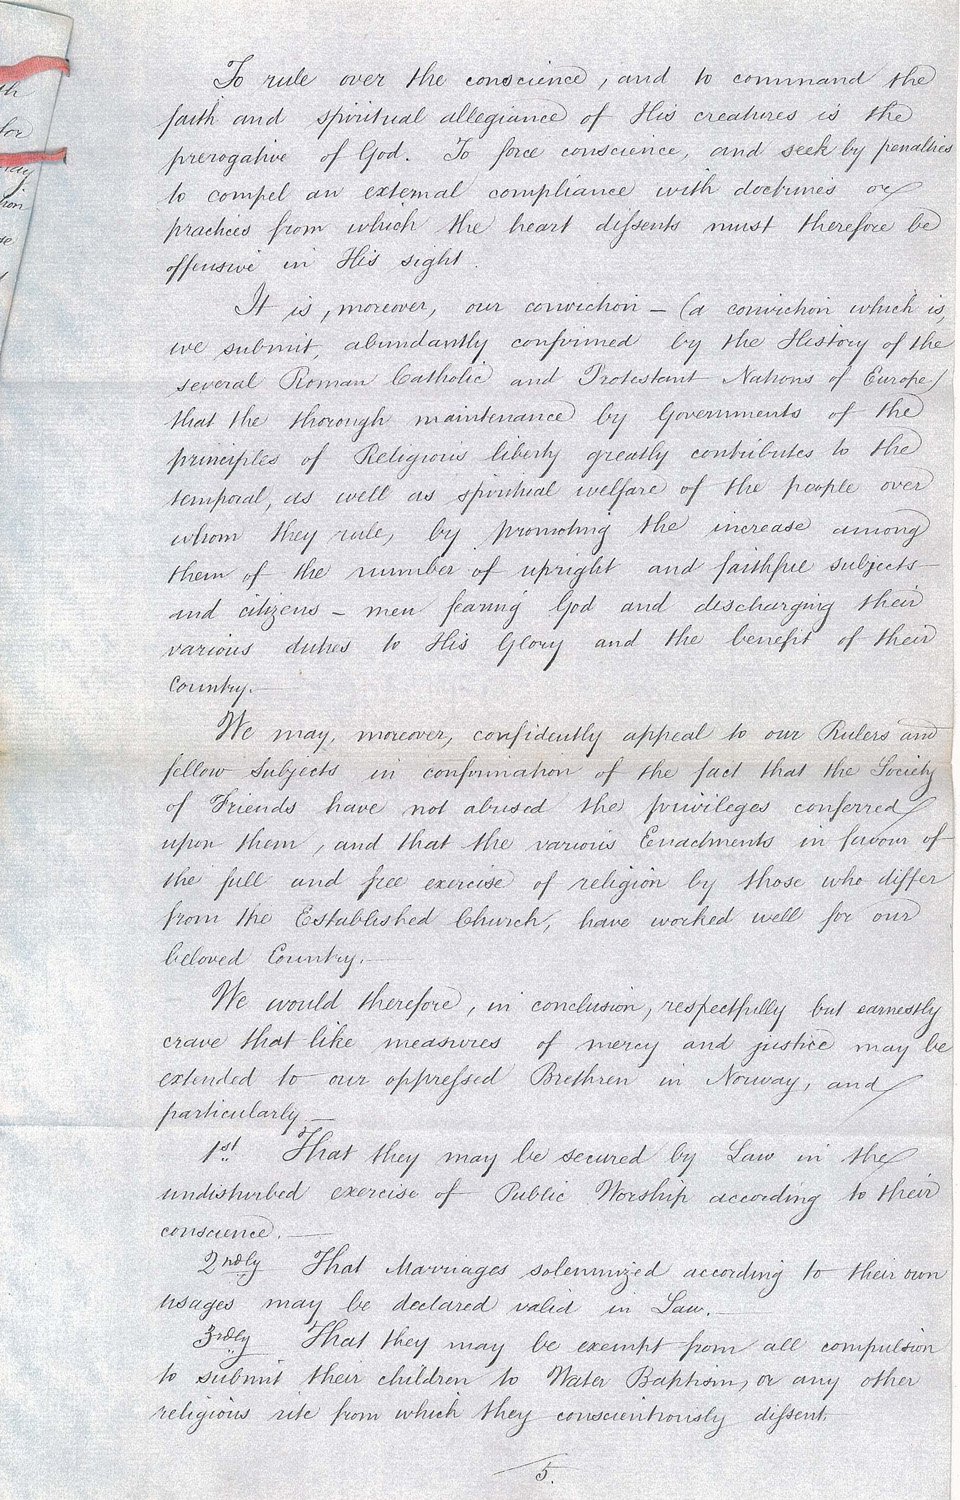 th
for
may
tion
se
To rule over the conscience, and to command the
faith and spiritual allegiance of His creatures is the
prerogative of God. To force conscience, and seek by penalties
to compel an external compliance with doctrines or
practices from which the heart dissents must therefore be
offensive in His sight.
It is, moreover, our conviction – (a conviction which is,
we submit, abundantly confirmed by the History of the
several Roman Catholic and Protestant Nations of Europe)
that the thorough maintenance by Governments of the
principles of Religious liberty greatly contributes to the
temporal, as well as spiritual welfare of the people over
whom they rule, by promoting the increase among
them of the number of upright and faithful subjects
and citizens – men fearing God and discharging their
various duties to His Glory and the benefit of their
Country.
We may, moreover, confidently appeal to our Rulers and
fellow Subjects in confirmation of the fact that the Society
of Friends have not abused the privileges conferred
upon them, and that the various Enactments in favour of
the full and free exercise of religion by those who differ
from the Established Church, have worked well for our
beloved Country.
We would therefore, in conclusion, respectfully but earnestly
crave that like measures of mercy and justice may be
extended to our oppressed Brethren in Norway, and
particularly –
1st. That they may be secured by Law in the
undisturbed exercise of Public Worship according to their
conscience. –
2ndly That Marriages solemnized according to their own
usages may be declared valid in Law. –
3rdly That they may be exempt from all compulsion
to submit their children to Water Baptism, or any other
religious rite from which they conscientiously dissent.
5.